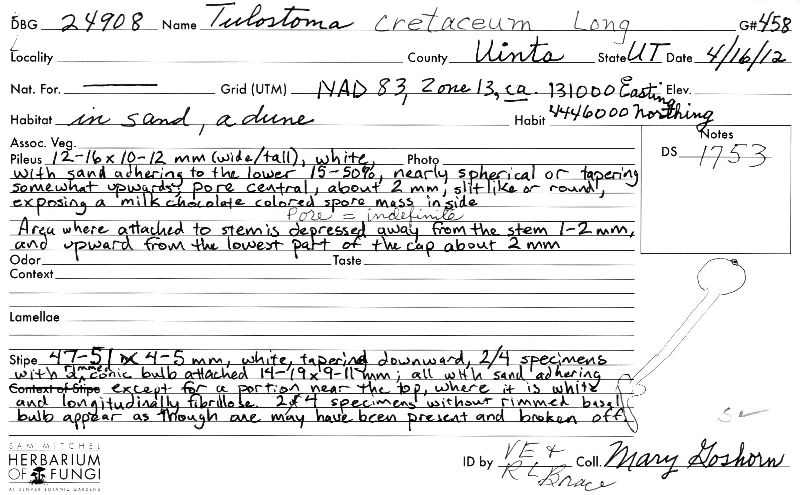 DBG 24908 Name Tulostoma cretaceum Long G# 458
Locality County Uinta State UT Date 4/16/12
Nat. For. Grid (UTM) NAD 83, Zone 13, ca. 131000 Easting Elev.
Habitat in sand, a dune Habit 4446000 Northing
Assoc. Veg. Notes
Pileus 12-16 x 10-12 mm (wide/tall), white, Photo DS 1753
with sand adhering to the lower 15-50%, nearly spherical or tapering
somewhat upwards; pore central, about 2 mm, slitlike or round,
exposing a milk chocolate colored spore mass inside
Pore = indefinite
Area where attached to stem is depressed away from the stem 1-2 mm,
and upward from the lowest part of the cap about 2 mm
Odor Taste
Context
Lamellae
Stipe 47-51 x 4-5 mm, white, tapering downward, 2/4 specimens
with a rimmed conic bulb attached 14-19 x 9-11 mm; all with sand adhering
Context of Stipe except for a portion near the top, where it is white
and longitudinally fibrillose. 2 of 4 specimens without rimmed basal
bulb appear as though one may have been present and broken off
SAM MITCHEL
HERBARIUM
OF FUNGI
AT DENVER BOTANIC GARDENS
ID by VE & RL Brace Coll. Mary Goshorn